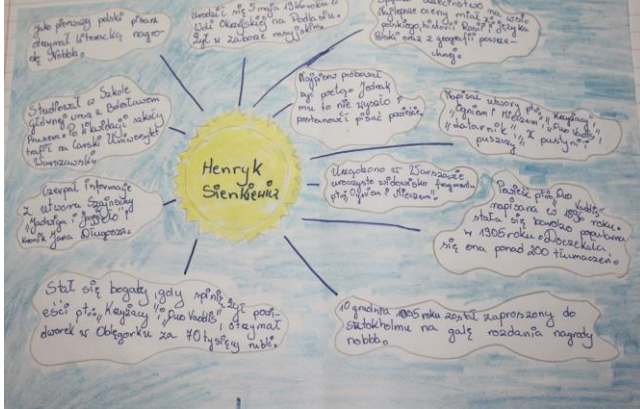 Jako pierwszy polski pisarz
otrzymał literacką nagro-
dę Nobbla.
Urodził się 5 maja 1846 roku w
Woli Okrzejskiej na Podlasiu.
Żył w zaborze rosyjskim.
dzieciństwo na wsi.
Najlepsze oceny miał z języka
polskiego, historii Rosji i
Polski oraz z geografii powsze-
chnej.
Studiował w Szkole
Głównej wraz z Bolesławem
Prusem. Po likwidacji szkoły
trafił na Carski Uniwersytet
Warszawski.
Najpierw próbował
być poetą. Jednak
mu to nie wyszło i
postanowił pisać powieści.
Napisał utwory pt: "Krzyżacy",
"Ogniem i Mieczem", "Quo Vadis",
"Latarnik", "W pustyni i
puszczy
Henryk
Sienkiewicz
Urządzono w Warszawie
uroczyste widowisko fragmentu
pt: "Ogniem i Mieczem".
Czerpał informacje
z utworu Szajnochy
"Jadwiga i Jagiełło" i
kronik Jana Długosza.
Powieść pt: "Quo Vadis"
napisana w 1896 roku.
stała się bardzo popularna
w 1905 roku. Doczekała
się ona ponad 200 tłumaczeń.
Stał się bogaty, gdy
eści pt: "Krzyżacy" i "Quo Vadis" i otrzymał
dworek w Oblęgorku za 70 tysięcy rubli.
10 grudnia 1905 roku został zaproszony do
Sztokholmu na galę rozdania nagrody
nobbla.